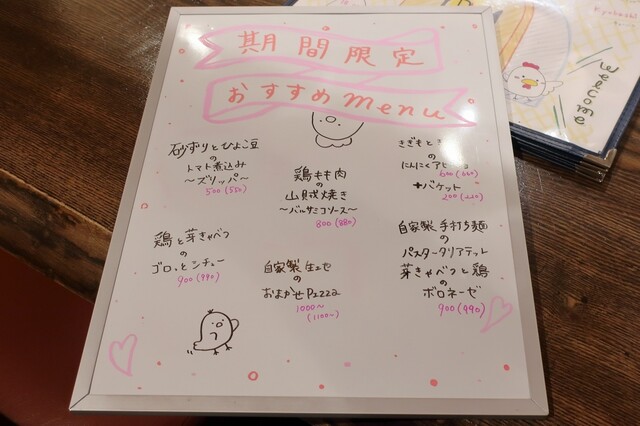 期間限定
おすすめmenu
砂ずりとひよこ豆
の
トマト煮込み
~ズリッパ~
500(550)
鶏もも肉
の
山賊焼き
~バルサミコソース~
800(880)
きぎもと
の
にんにく
600(660)
+バケット
200(220)
鶏と芽きゃべつ
の
ゴロっとシチュー
900(990)
自家製生地
の
おまかせPizza
1000~
(1100~)
自家製手打ち麺
の
パスタータリアテッレ
芽きゃべつと鶏
の
ボロネーゼ
900(990)
Welcome